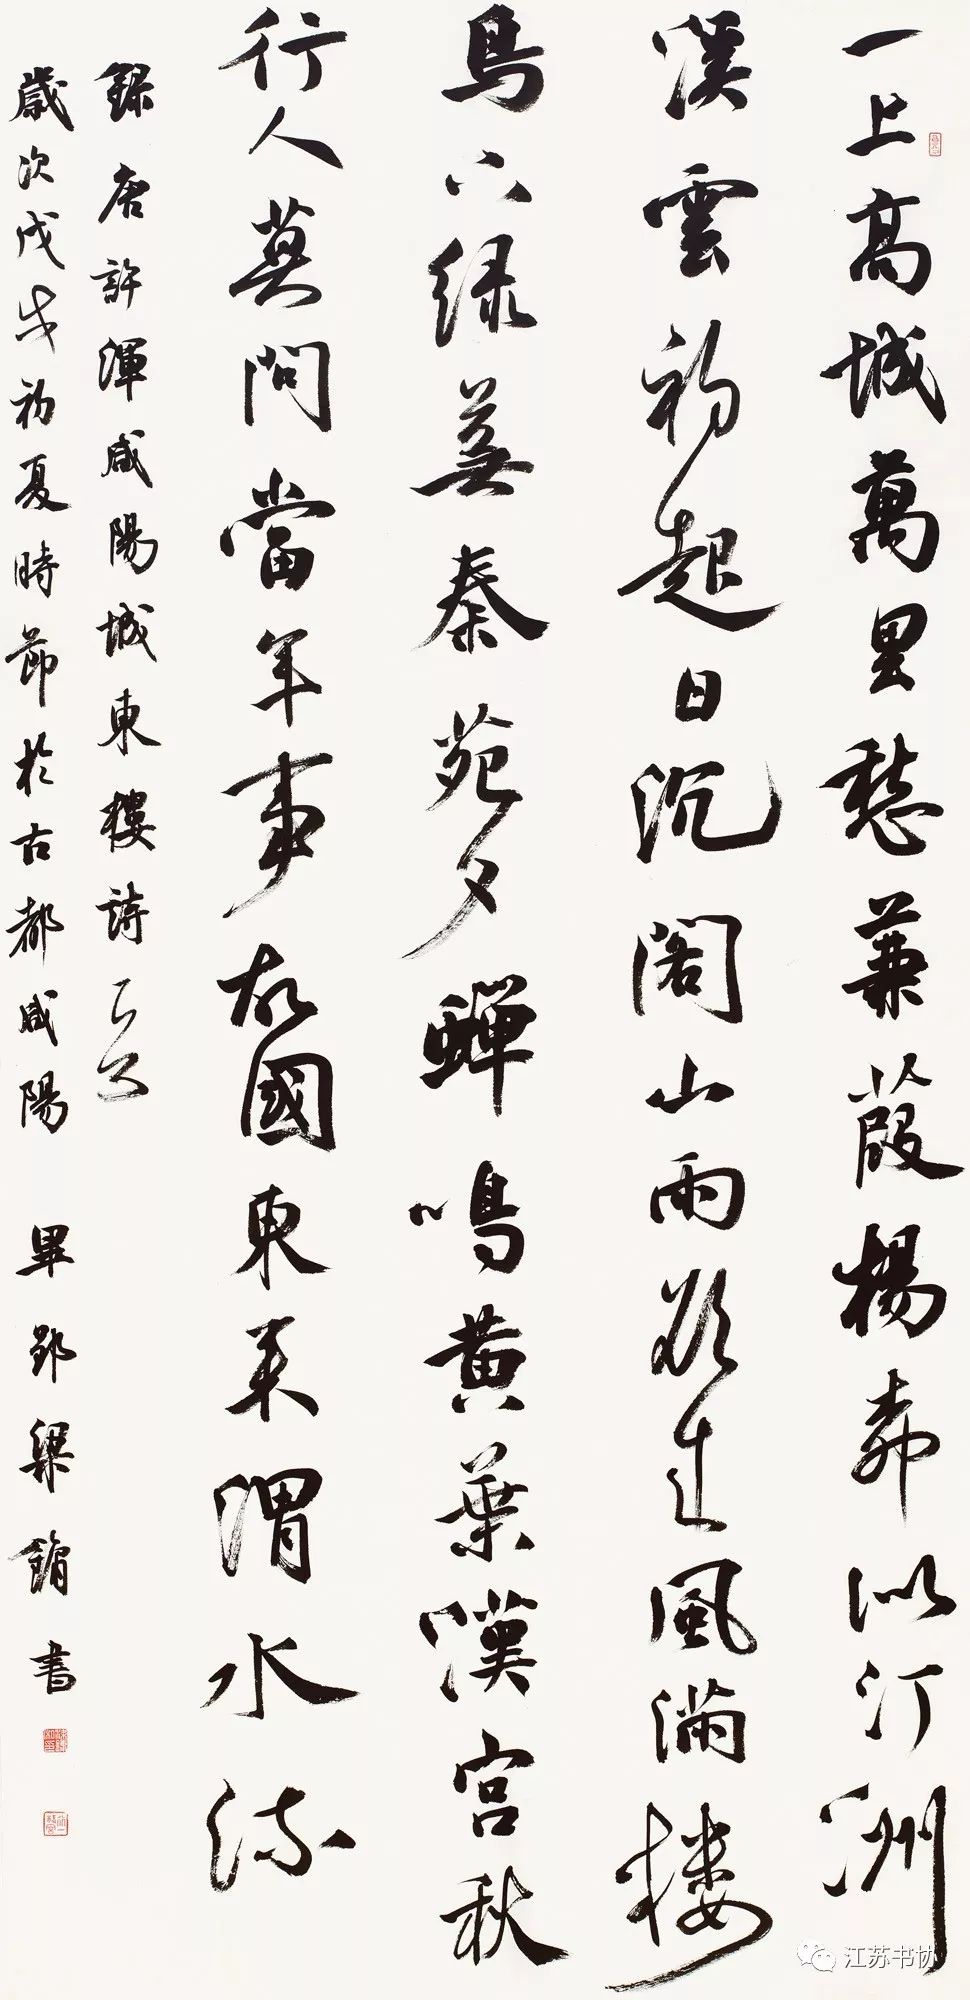 一上高城萬里愁蒹葭楊柳似汀洲
溪雲初起日沉閣山雨欲來風滿樓
鳥下綠蕪秦苑夕蟬鳴黃葉漢宮秋
行人莫問當年事故國東來渭水流
錄唐許渾咸陽城東樓詩一首
歲次戊戌初夏時節於古都咸陽 畢郢梁書
江苏书协